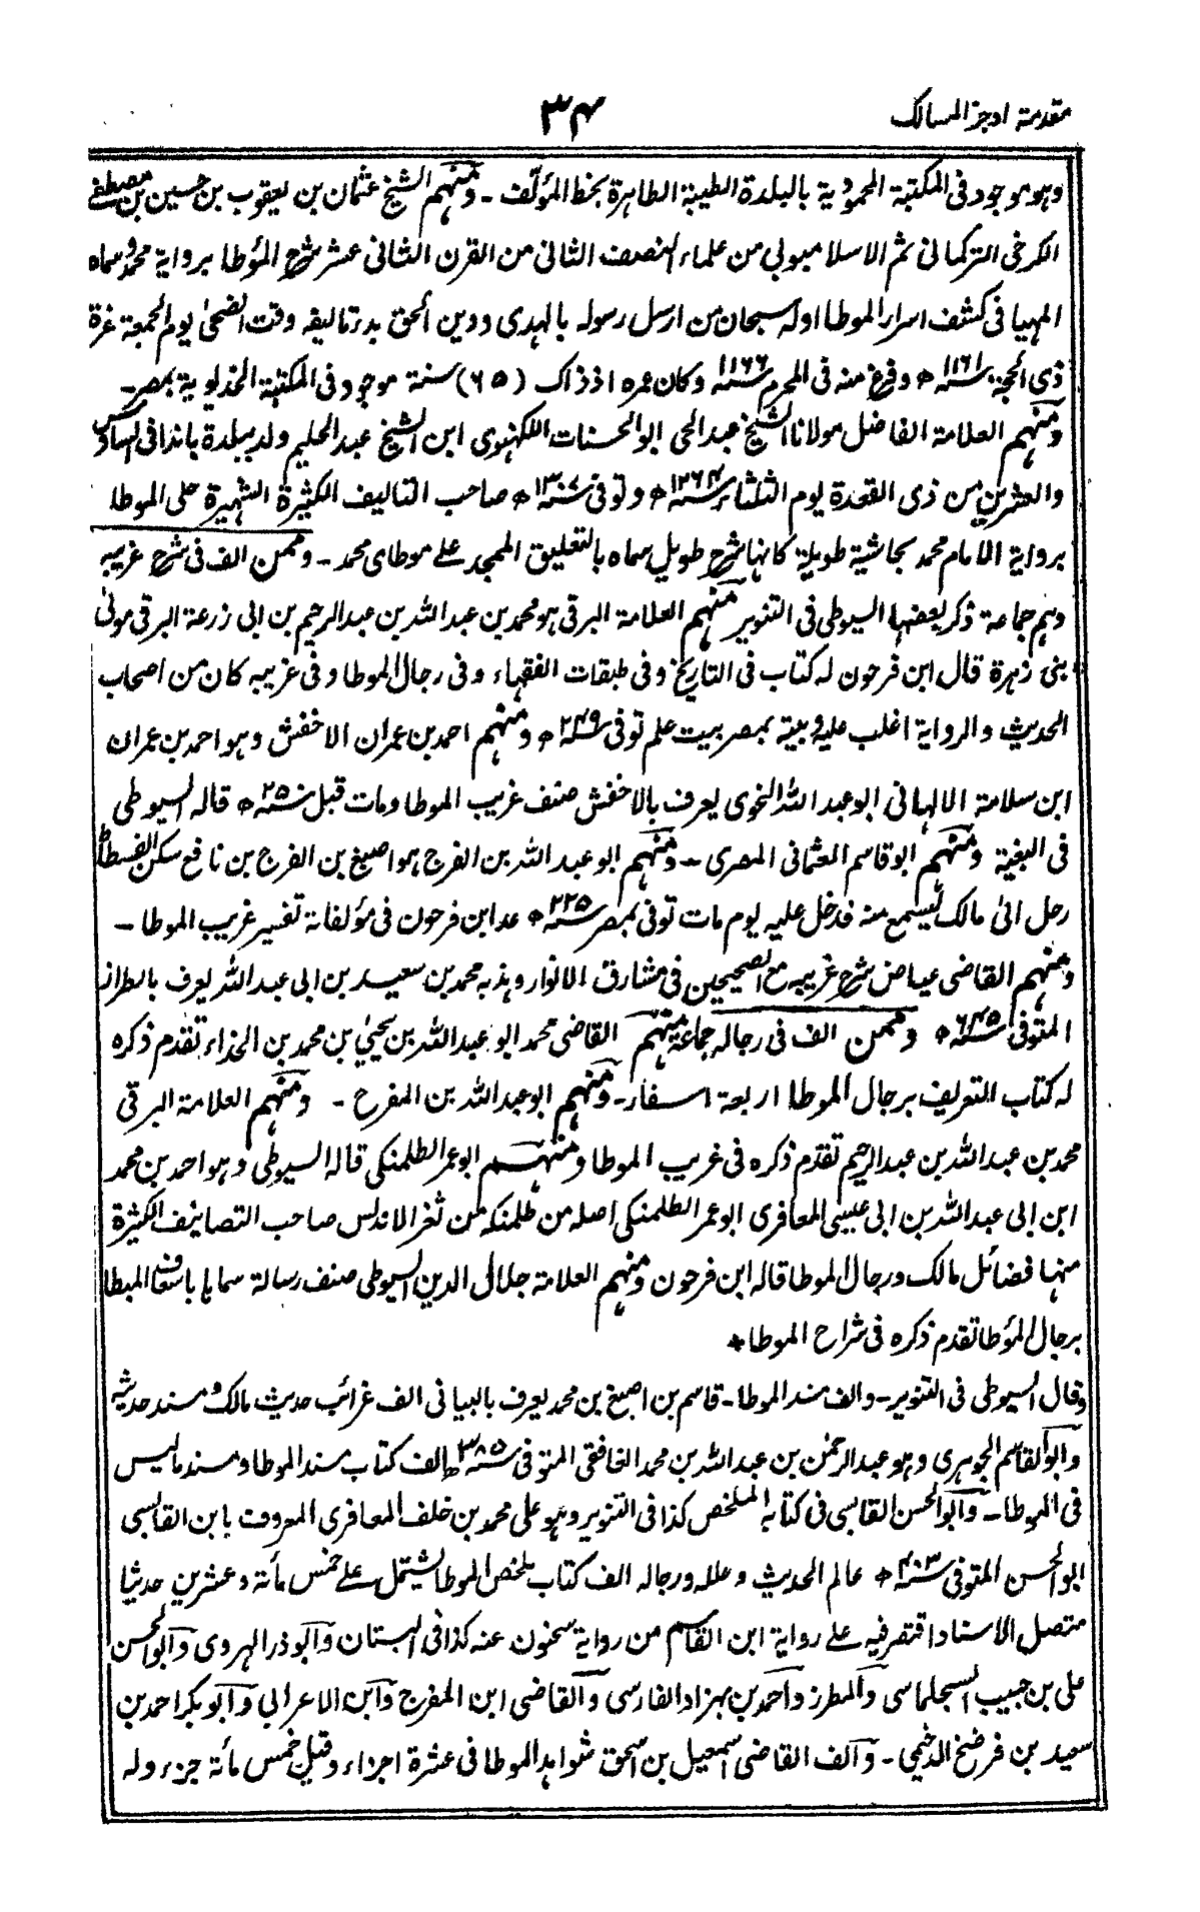 مقدمة اوجز المسالك
٣٤
وهو موجود فى المكتبة المحمودية بالبلدة الطيبة الطاهرة بخط المؤلف ـ ومنهم الشيخ عثمان بن يعقوب بن حسين بن مصطفے
الكرخى التركمانى ثم الاسلامبولى من علماء النصف الثانى من القرن الثانى عشر شرح المؤطا برواية محمد وسماه
المهيا فى كشف اسرار الموطا اوله سبحان من ارسل رسوله بالهدى ودين الحق بدء تاليفه وقت الضحىٰ يوم الجمعة غرة
ذى الحجة سنة ١١٦١ه وفرغ منه فى المحرم سنة ١١٦٦ وكان عمره اذ ذاك (٦٥) سنة موجود فى المكتبة الخديوية بمصر ـ
ومنهم العلامة الفاضل مولانا الشيخ عبد الحى ابو الحسنات اللكهنوى ابن الشيخ عبد الحليم ولد ببلدة باندا فى السادس
والعشرين من ذى القعدة يوم الثلثاء سنة ١٢٦٤ه وتوفى سنة ١٣٠٧ه صاحب التاليف الكثيرة الشهيرة على الموطا
برواية الامام محمد بحاشية طويلة كانها شرح طويل سماه بالتعليق الممجد علے موطاى محمد ـ وممن الف فى شرح غريبه
وهم جماعة ذكر بعضها السيوطى فى التنوير منهم العلامة البرقى هو محمد بن عبد الله بن عبد الرحيم بن ابى زرعة البرقى مولىٰ
بنى زهرة قال ابن فرحون له كتاب فى التاريخ وفى طبقات الفقهاء وفى رجال الموطا وفى غريبه كان من اصحاب
الحديث والرواية اغلب عليه وبيته بمصر بيت علم توفى سنة ٢٤٩ه ومنهم احمد بن عمران الاخفش وهو احمد بن عمران
ابن سلامة الالهانى ابو عبد الله النحوى يعرف بالاخفش صنف غريب الموطا ومات قبل سنة ٢٥٠ه قاله السيوطى
فى البغية ومنهم ابو قاسم العثمانى المصرى ـ ومنهم ابو عبد الله بن الفرج هو اصبغ بن الفرج بن نافع سكن الفسطاط
رحل الىٰ مالك ليسمع منه فدخل عليه يوم مات توفى بمصر سنة ٢٢٥ه عد ابن فرحون فى مؤلفاته تفسير غريب الموطا ـ
ومنهم القاضى عياض شرح غريبه مع الصحيحين فى مشارق الانوار وهذبه محمد بن سعيد بن ابى عبد الله يعرف بالطراز
المتوفى سنة ٦٤٥ه وممن الف فى رجاله جماعة منهم القاضى محمد ابو عبد الله بن يحيىٰ بن محمد بن الحذاء تقدم ذكره
له كتاب التعريف برجال الموطا اربعة اسفار ـ ومنهم ابو عبد الله بن المفرح ـ ومنهم العلامة البرقى
محمد بن عبد الله بن عبد الرحيم تقدم ذكره فى غريب الموطا ومنهم ابو عمر الطلمنكى قاله السيوطى وهو احمد بن محمد
ابن ابى عبد الله بن ابى عيسىٰ المعافرى ابو عمر الطلمنكى اصله من طلمنكه من ثغر الاندلس صاحب التصانيف الكثيرة
منها فضائل مالك ورجال الموطا قاله ابن فرحون ومنهم العلامة جلال الدين السيوطى صنف رسالة سماها باسعاف المبطا
برجال المؤطا تقدم ذكره فى شراح الموطا *
وقال السيوطى فى التنوير ـ والف مسند الموطا ـ قاسم بن اصبغ بن محمد يعرف بالبيانى الف غرائب حديث مالك ومسند حديثه
وابو القاسم الجوهرى وهو عبد الرحمٰن بن عبد الله بن محمد الغافقى المتوفى سنة ٣٨٥ه الف كتاب مسند الموطا ومسند ماليس
فى الموطا ـ وابو الحسن القابسى فى كتابه الملخص كذا فى التنوير وهو على محمد بن خلف المعافرى المعروف بابن القابسى
ابو الحسن المتوفى سنة ٤٠٣ه عالم الحديث وعلله ورجاله الف كتاب ملخص الموطا يشتمل علے خمس مأئة وعشرين حديثا
متصل الاسناد اقتصر فيه علے رواية ابن القاسم من رواية سحنون عنه كذا فى البستان وابو ذر الهروى وابو الحسن
على بن حبيب السجلماسى والمطرز واحمد بن بهزاد الفارسى والقاضى ابن المفرج وابن الاعرابى وابو بكر احمد بن
سعيد بن فرضخ الاخميمى ـ والف القاضى اسمعيل بن اسحق شواهد الموطا فى عشرة اجزاء وقيل خمس مأئة جزء وله